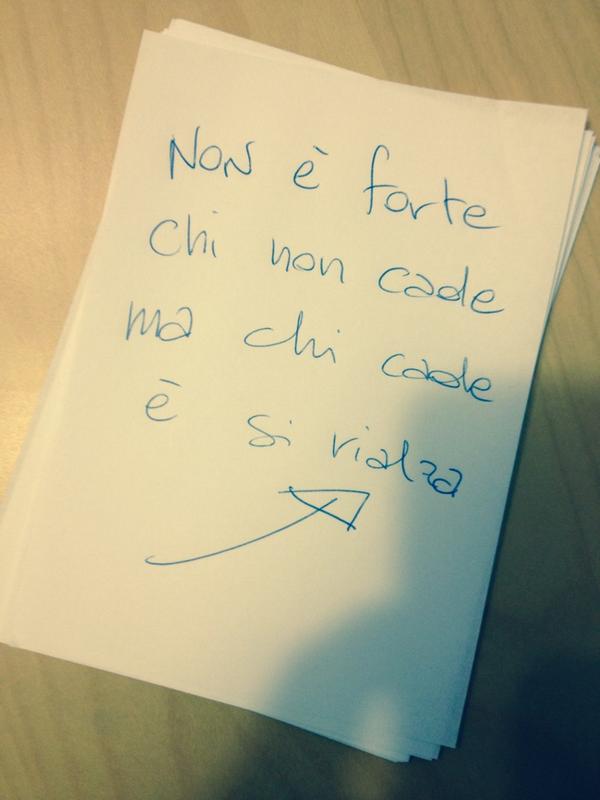 NON è forte
chi non cade
ma chi cade
è si rialza